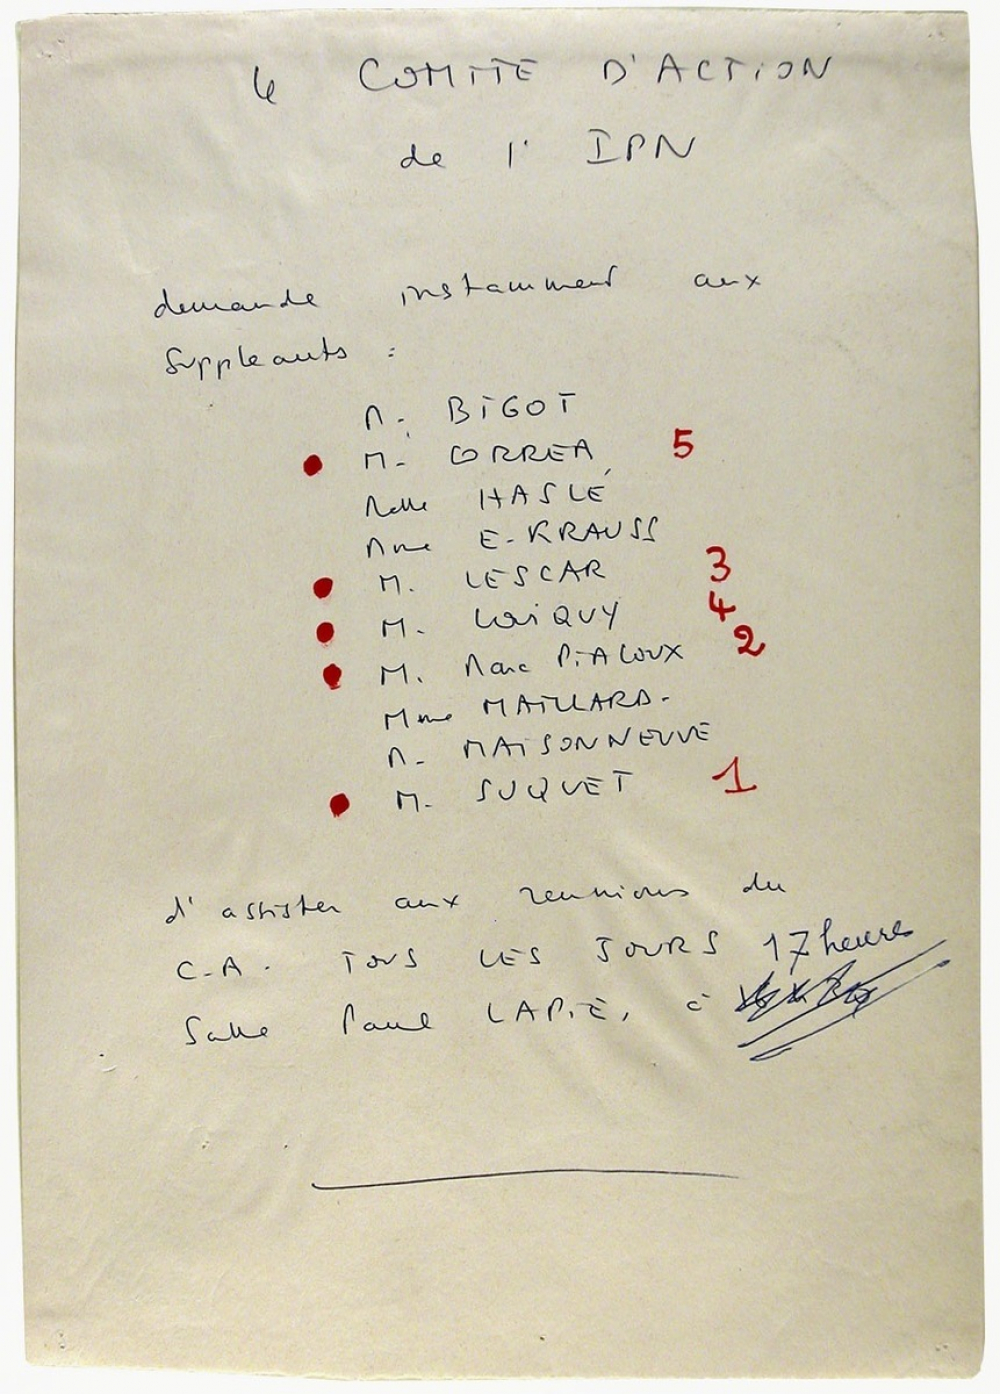 Le COMITE D'ACTION
de l' IPN
demande instamment aux
Suppleants :
M. BIGOT
M. CORREA 5
Melle HASLÉ
Mme E. KRAUSS
M. LESCAR 3
M. LOUIQUY 4
M. Marc PIALOUX 2
Mme MAILLARD.
M. MAISONNEUVE
M. SUQUET 1
d'assister aux reunions du
C.A. TOUS LES JOURS 17 heures
Salle Paul LAPIE, à